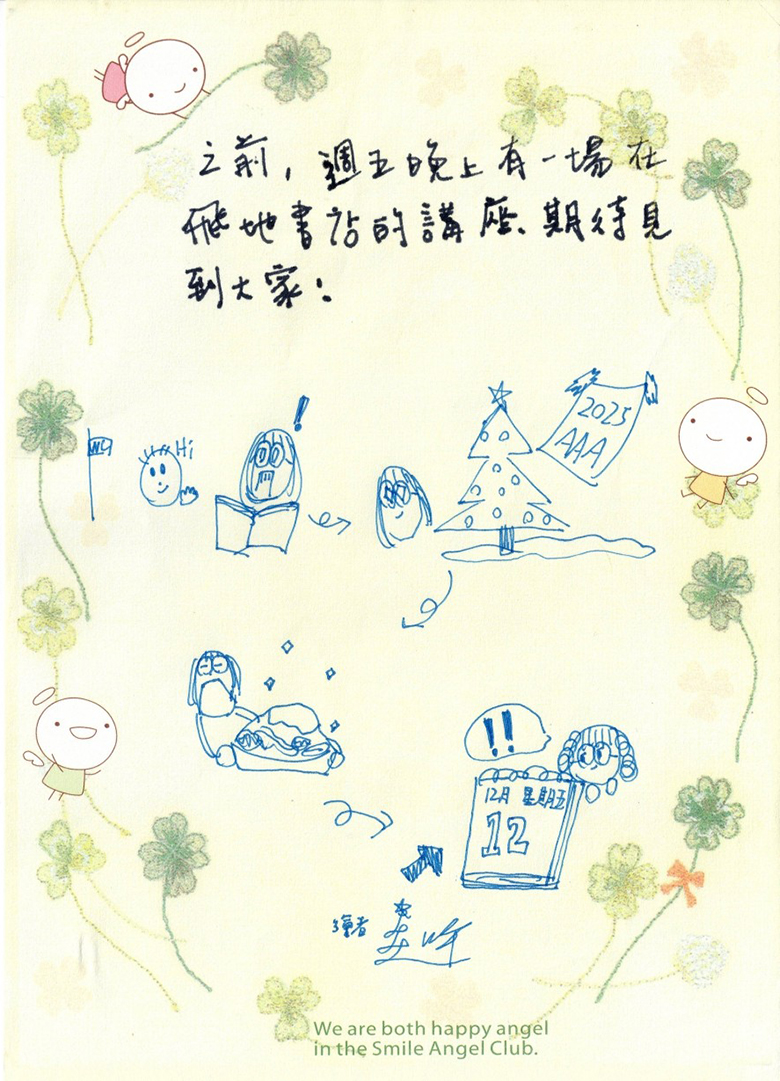 之前，週五晚上有一場在
飛地書店的講座、期待見
到大家！
Hi
!
2025
AAA
!!
12月 星期五
12
We are both happy angel
in the Smile Angel Club.